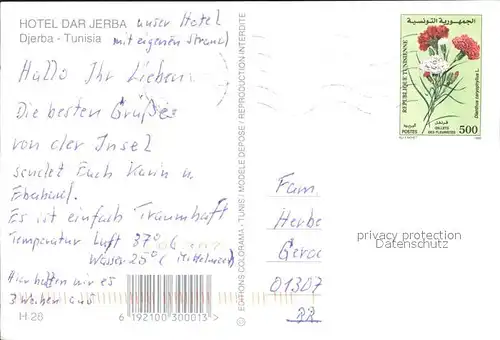 HOTEL DAR JERBA unser Hotel
Djerba - Tunisia mit eigenem Strand)
Hallo Ihr Lieben
Die besten Grüße
von der Insel
sendet Euch Karin u
Eberhard.
Es ist einfach Traumhaft
Temperatur Luft 37° C
Wasser 25° C (Mittelmeer)
Hier halten wir es
3 Wochen aus
H 26
6 192100 300013 >
© EDITIONS COLORAMA - TUNIS / MODELE DEPOSE / REPRODUCTION INTERDITE
الجمهورية التونسية
REPUBLIQUE TUNISIENNE
Dianthus caryophyllus L.
قرنفل
البريد
POSTES
OEILLETS
DES FLEURISTES
500
Fam.
Herbe
Gera
01307
privacy protection
Datenschutz